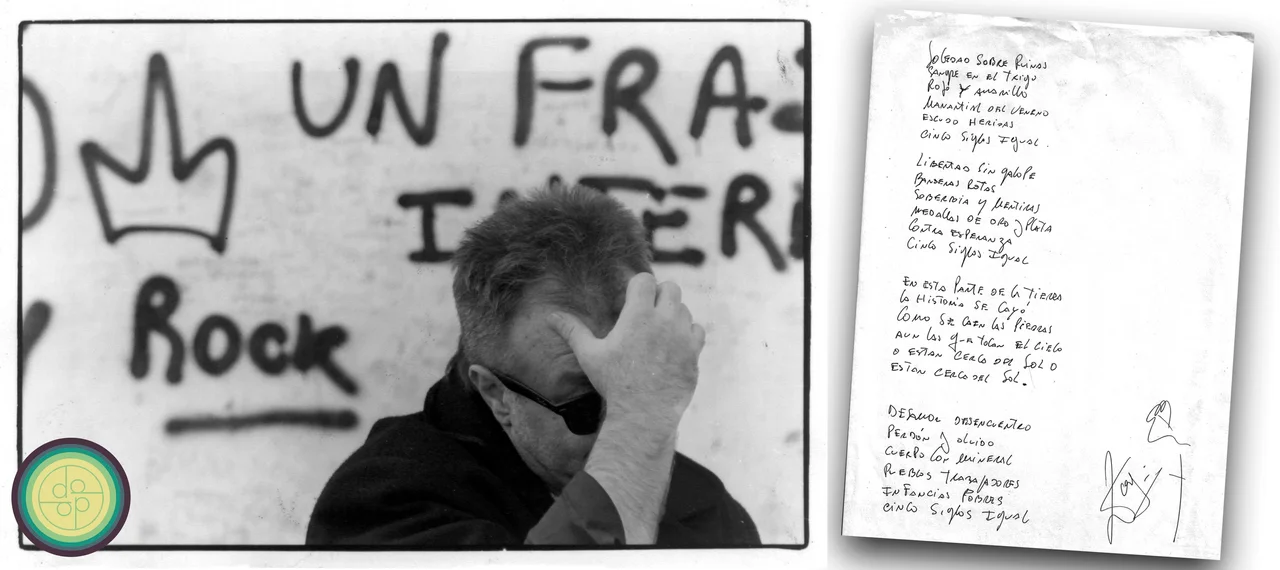 UN FRA
INTER
ROCK
SOLEDAD SOBRE RUINAS
SANGRE EN EL TRIGO
ROJO Y AMARILLO
MANANTIAL DEL VENENO
ESCUDO HERIDAS
CINCO SIGLOS IGUAL.
LIBERTAD SIN GALOPE
BANDERAS ROTAS
SOBERBIA Y MENTIRAS
MEDALLAS DE ORO Y PLATA
CONTRA ESPERANZA
CINCO SIGLOS IGUAL
EN ESTA PARTE DE LA TIERRA
LA HISTORIA SE CAYÓ
COMO SE CAEN LAS PIEDRAS
AUN LAS QUE TOCAN EL CIELO
O ESTAN CERCA DEL SOL O
ESTAN CERCA DEL SOL.
DESAMOR DESENCUENTRO
PERDÓN Y OLVIDO
CUERPO CON MINERAL
PUEBLOS TRABAJADORES
INFANCIAS POBRES
CINCO SIGLOS IGUAL